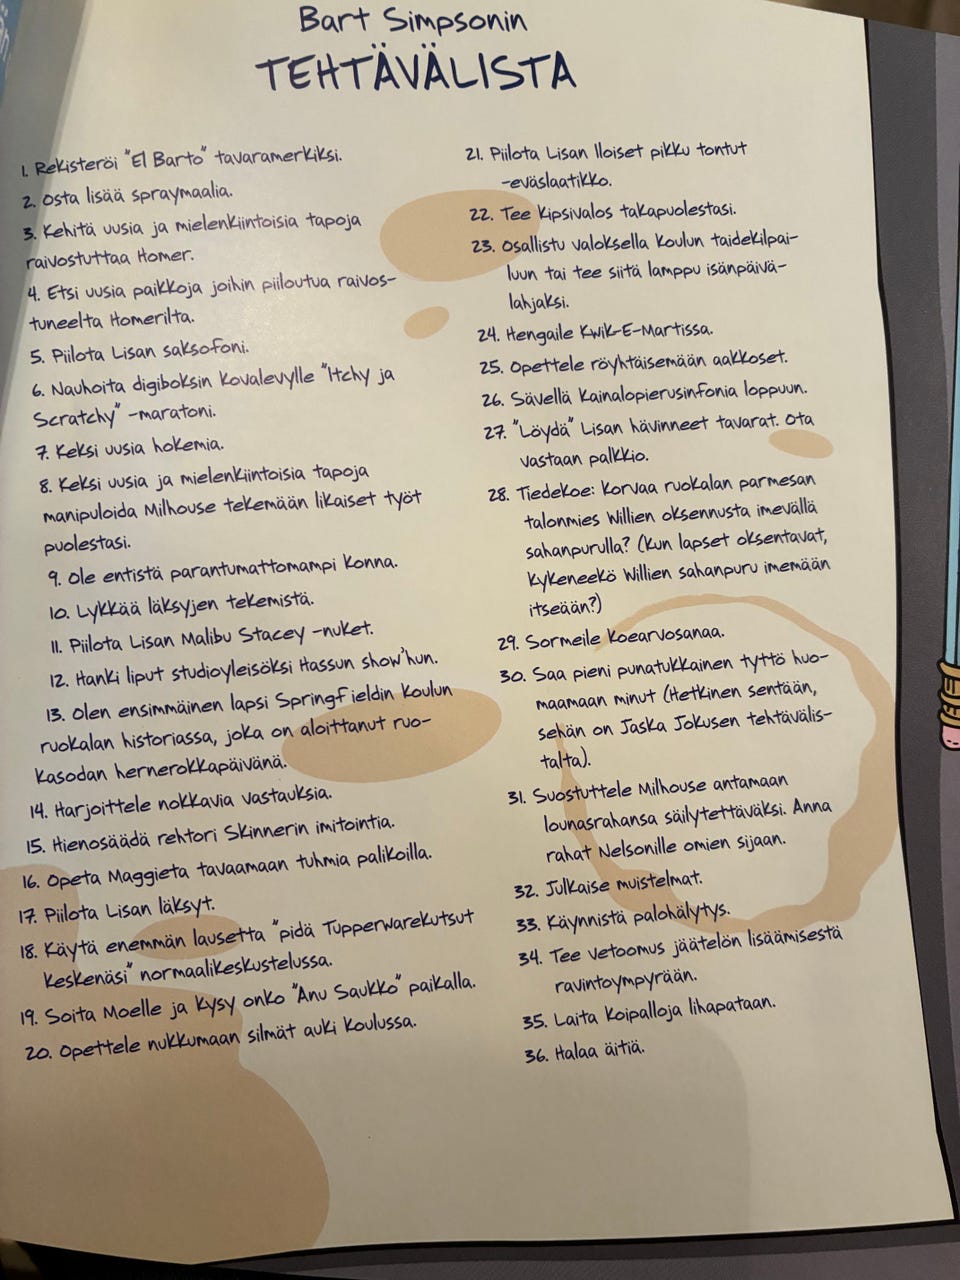 Bart Simpsonin
TEHTÄVÄLISTA
1. Rekisteröi "El Barto" tavaramerkiksi.
2. Osta lisää spraymaalia.
3. Kehitä uusia ja mielenkiintoisia tapoja
raivostuttaa Homer.
4. Etsi uusia paikkoja joihin piiloutua raivos-
tuneelta Homerilta.
5. Piilota Lisan saksofoni.
6. Nauhoita digiboksin kovalevylle "Itchy ja
Scratchy" -maratoni.
7. Keksi uusia hokemia.
8. Keksi uusia ja mielenkiintoisia tapoja
manipuloida Milhouse tekemään likaiset työt
puolestasi.
9. Ole entistä parantumattomampi konna.
10. Lykkää läksyjen tekemistä.
11. Piilota Lisan Malibu Stacey -nuket.
12. Hanki liput studioyleisöksi Hassun show'hun.
13. Olen ensimmäinen lapsi Springfieldin koulun
ruokalan historiassa, joka on aloittanut ruo-
kasodan hernerokkapäivänä.
14. Harjoittele nokkavia vastauksia.
15. Hienosäädä rehtori Skinnerin imitointia.
16. Opeta Maggieta tavaamaan tuhmia palikoilla.
17. Piilota Lisan läksyt.
18. Käytä enemmän lausetta "pidä Tupperwarekutsut
keskenäsi" normaalikeskustelussa.
19. Soita Moelle ja kysy onko "Anu Saukko" paikalla.
20. Opettele nukkumaan silmät auki koulussa.
21. Piilota Lisan Iloiset pikku tontut
-eväslaatikko.
22. Tee kipsivalos takapuolestasi.
23. Osallistu valoksella koulun taidekilpai-
luun tai tee siitä lamppu isänpäivä-
lahjaksi.
24. Hengaile Kwik-E-Martissa.
25. Opettele röyhtäisemään aakkoset.
26. Sävellä Kainalopierusinfonia loppuun.
27. "Löydä" Lisan hävinneet tavarat. Ota
vastaan palkkio.
28. Tiedekoe: Korvaa ruokalan parmesan
talonmies Willien oksennusta imevällä
sahanpurulla? (Kun lapset oksentavat,
kykeneekö Willien sahanpuru imemään
itseään?)
29. Sormeile koearvosanaa.
30. Saa pieni punatukkainen tyttö huo-
maamaan minut (Hetkinen sentään,
sehän on Jaska Jokusen tehtävälis-
talta).
31. Suostuttele Milhouse antamaan
lounasrahansa säilytettäväksi. Anna
rahat Nelsonille omien sijaan.
32. Julkaise muistelmat.
33. Käynnistä palohälytys.
34. Tee vetoomus jäätelön lisäämisestä
ravintoympyrään.
35. Laita koipalloja lihapataan.
36. Halaa äitiä.